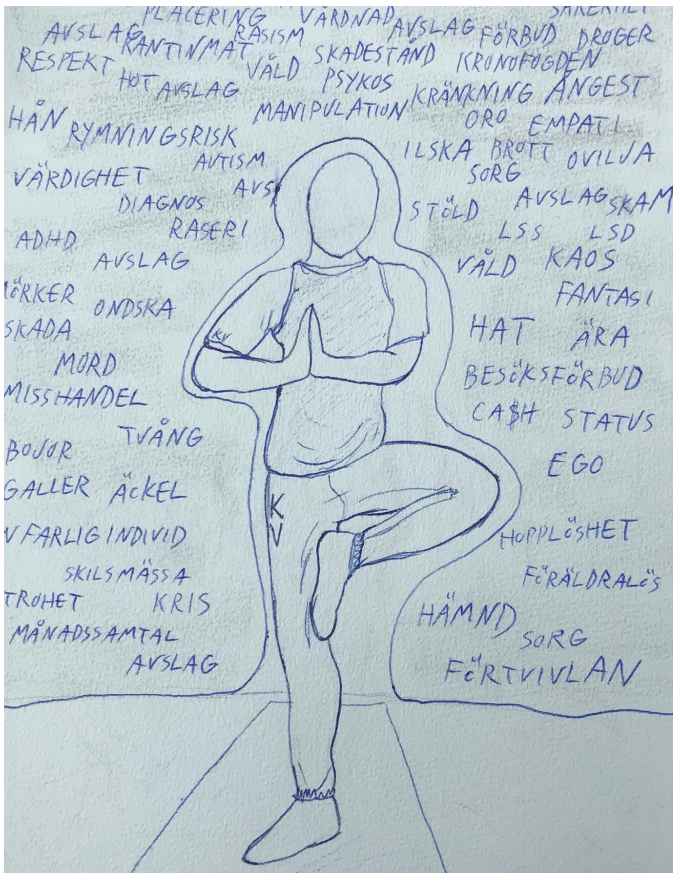 PLACERING VÅRDNAD SÄKERHET
AVSLAG RASISM AVSLAG FÖRBUD DROGER
RESPEKT KANTINMAT VÅLD SKADESTÅND KRONOFOGDEN
HOT AVSLAG PSYKOS KRÄNKNING ÅNGEST
MANIPULATION ORO EMPATI
HÅN RYMNINGSRISK
AUTISM ILSKA BROTT OVILJA
VÄRDIGHET AVS SORG
DIAGNOS STÖLD AVSLAG SKAM
ADHD RASERI LSS LSD
AVSLAG VÅLD KAOS
MÖRKER ONDSKA FANTASI
SKADA HAT ÄRA
MORD BESÖKSFÖRBUD
MISSHANDEL CA$H STATUS
BOJOR TVÅNG EGO
GALLER ÄCKEL
V FARLIG INDIVID HOPPLÖSHET
SKILSMÄSSA FÖRÄLDRALÖS
TROHET KRIS HÄMND
MÅNADSSAMTAL SORG
AVSLAG FÖRTVIVLAN
KV
K
V